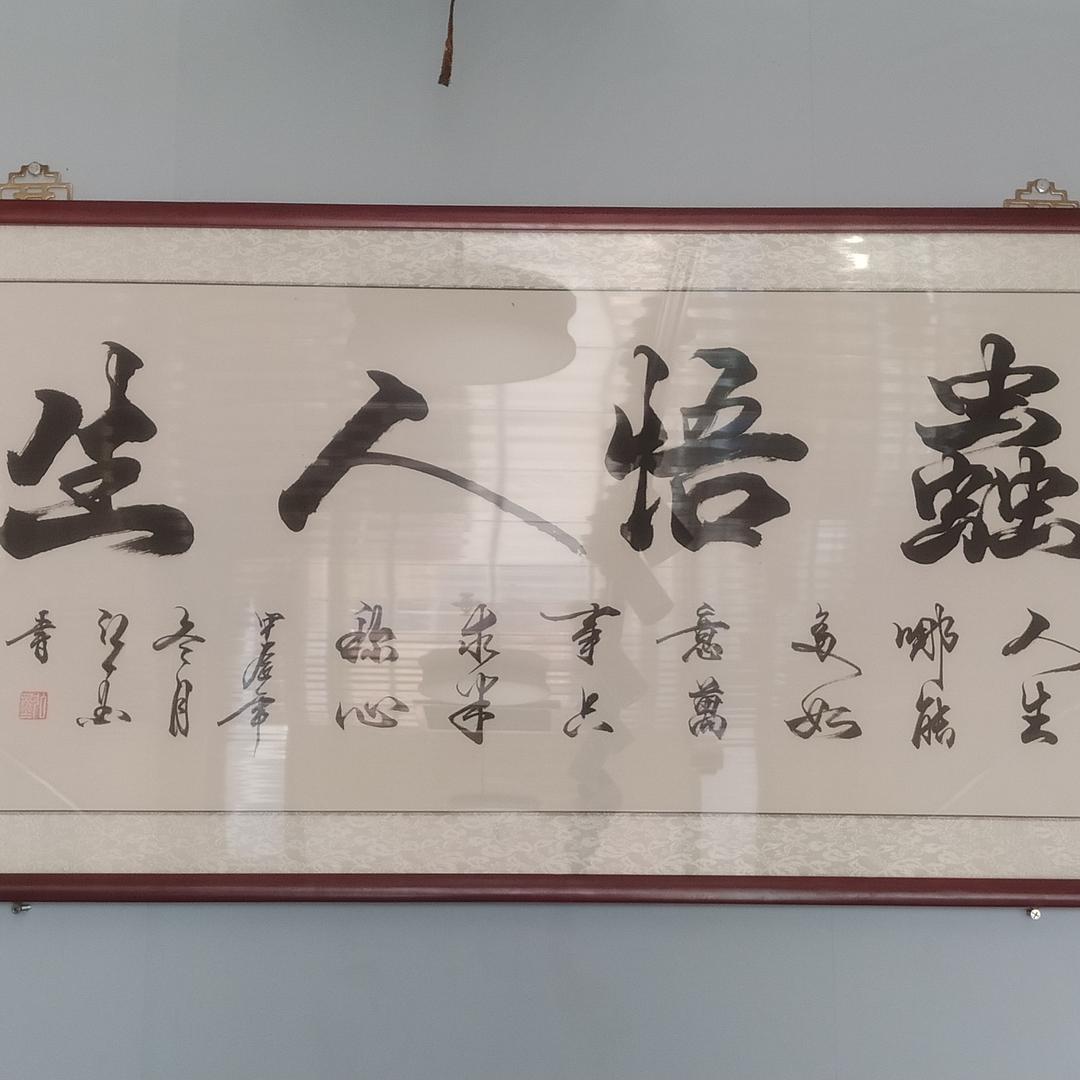 蟲悟人生
人生
哪能
多如
意萬
事只
求半
称心
甲辰年
冬月